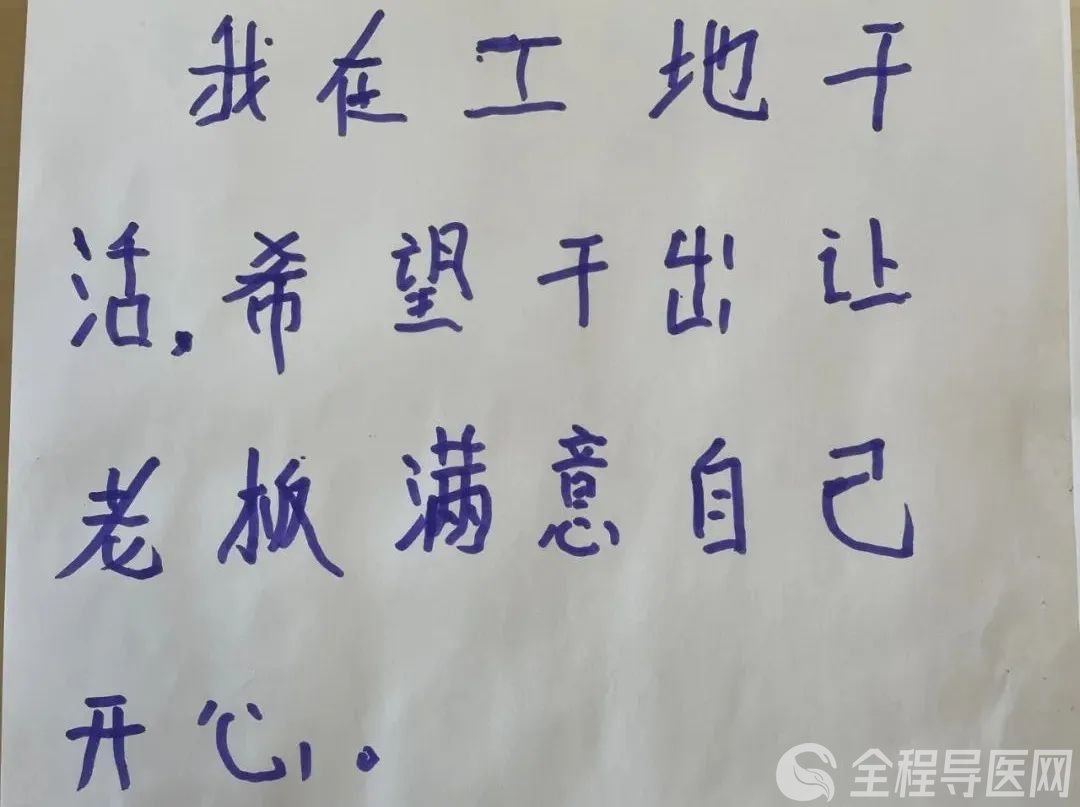 我在工地干
活,希望干出让
老板满意自己
开心。
全程导医网